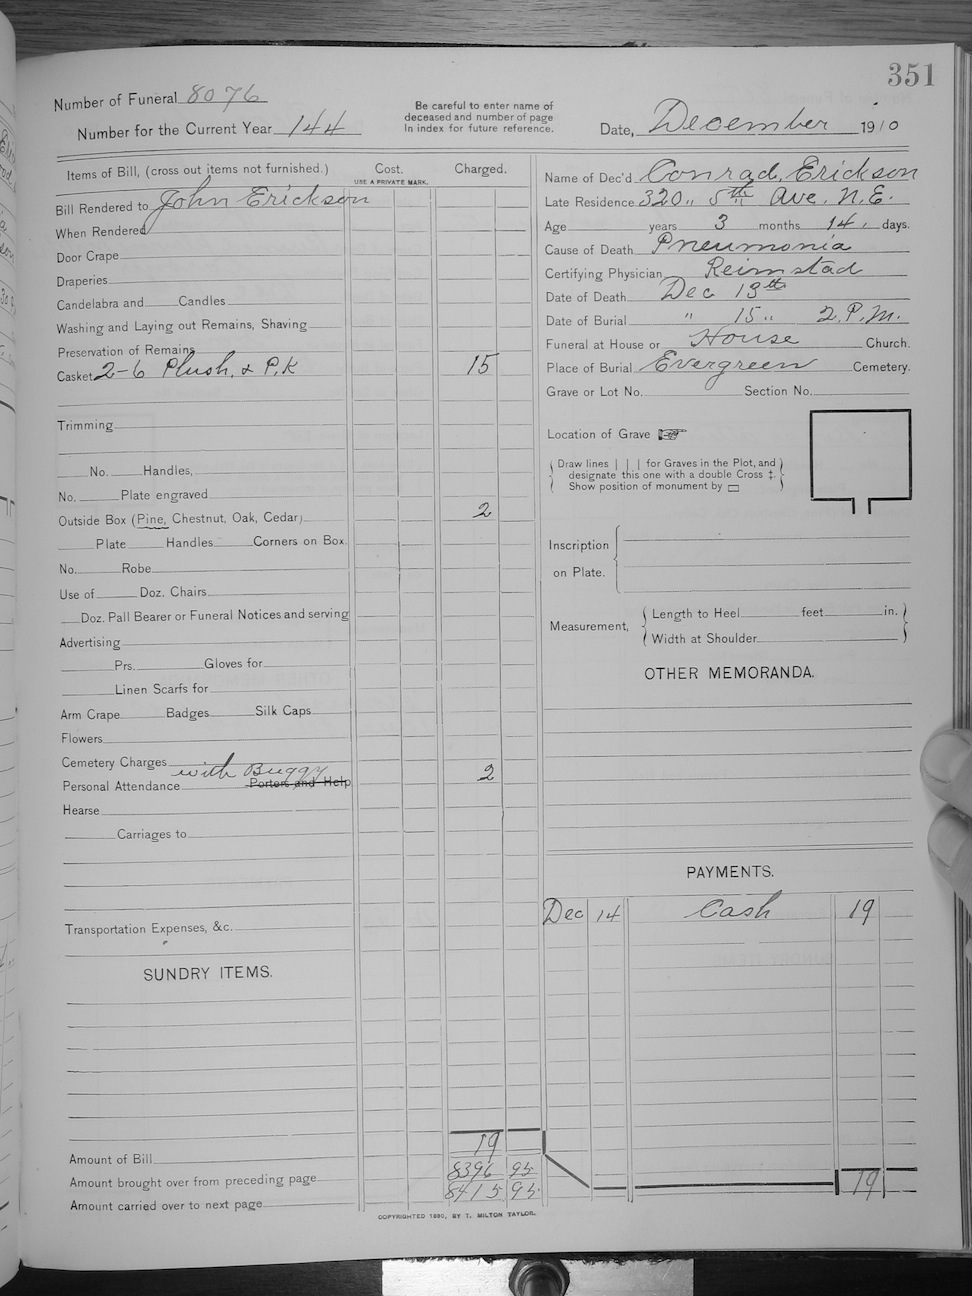 351
Number of Funeral 8076
Number for the Current Year 144
Be careful to enter name of
deceased and number of page
In index for future reference.
Date, December 1910
Items of Bill, (cross out items not furnished.) Cost. Charged.
USE A PRIVATE MARK.
Bill Rendered to John Erickson
When Rendered
Door Crape
Draperies
Candelabra and Candles
Washing and Laying out Remains, Shaving
Preservation of Remains
Casket 2-6 Plush. & P.K 15
Trimming
No. Handles,
No. Plate engraved
Outside Box (Pine, Chestnut, Oak, Cedar) 2
Plate Handles Corners on Box.
No. Robe
Use of Doz. Chairs
Doz. Pall Bearer or Funeral Notices and serving
Advertising
Prs. Gloves for
Linen Scarfs for
Arm Crape Badges Silk Caps
Flowers
Cemetery Charges
with Buggy 2
Personal Attendance Porters and Help
Hearse
Carriages to
Transportation Expenses, &c.
SUNDRY ITEMS.
Amount of Bill 19
Amount brought over from preceding page 8396 95
Amount carried over to next page 8415 95
COPYRIGHTED 1890, BY T. MILTON TAYLOR.
Name of Dec'd Conrad Erickson
Late Residence 320 " 5th Ave. N.E.
Age years 3 months 14 days.
Cause of Death Pneumonia
Certifying Physician Reimstad
Date of Death Dec 13th
Date of Burial " 15 " 2. P.M.
Funeral at House or House Church.
Place of Burial Evergreen Cemetery.
Grave or Lot No. Section No.
Location of Grave
Draw lines | | | for Graves in the Plot, and
designate this one with a double Cross ‡.
Show position of monument by
Inscription
on Plate.
Measurement, Length to Heel feet in.
Width at Shoulder
OTHER MEMORANDA.
PAYMENTS.
Dec 14 Cash 19
19